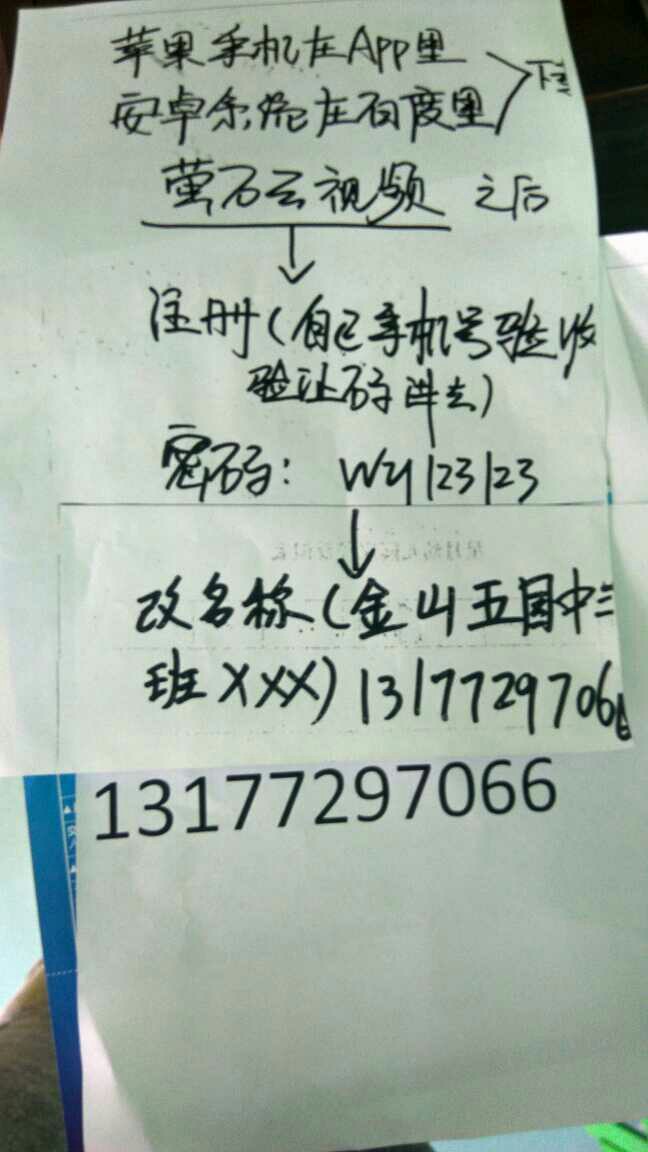 苹果手机在App里
安卓系统在百度里
下载
萤石云视频 之后
注册(自己手机号验收
验证码进去)
密码: wy123123
改名称(金山五园中三
班XXX) 13177297066
13177297066